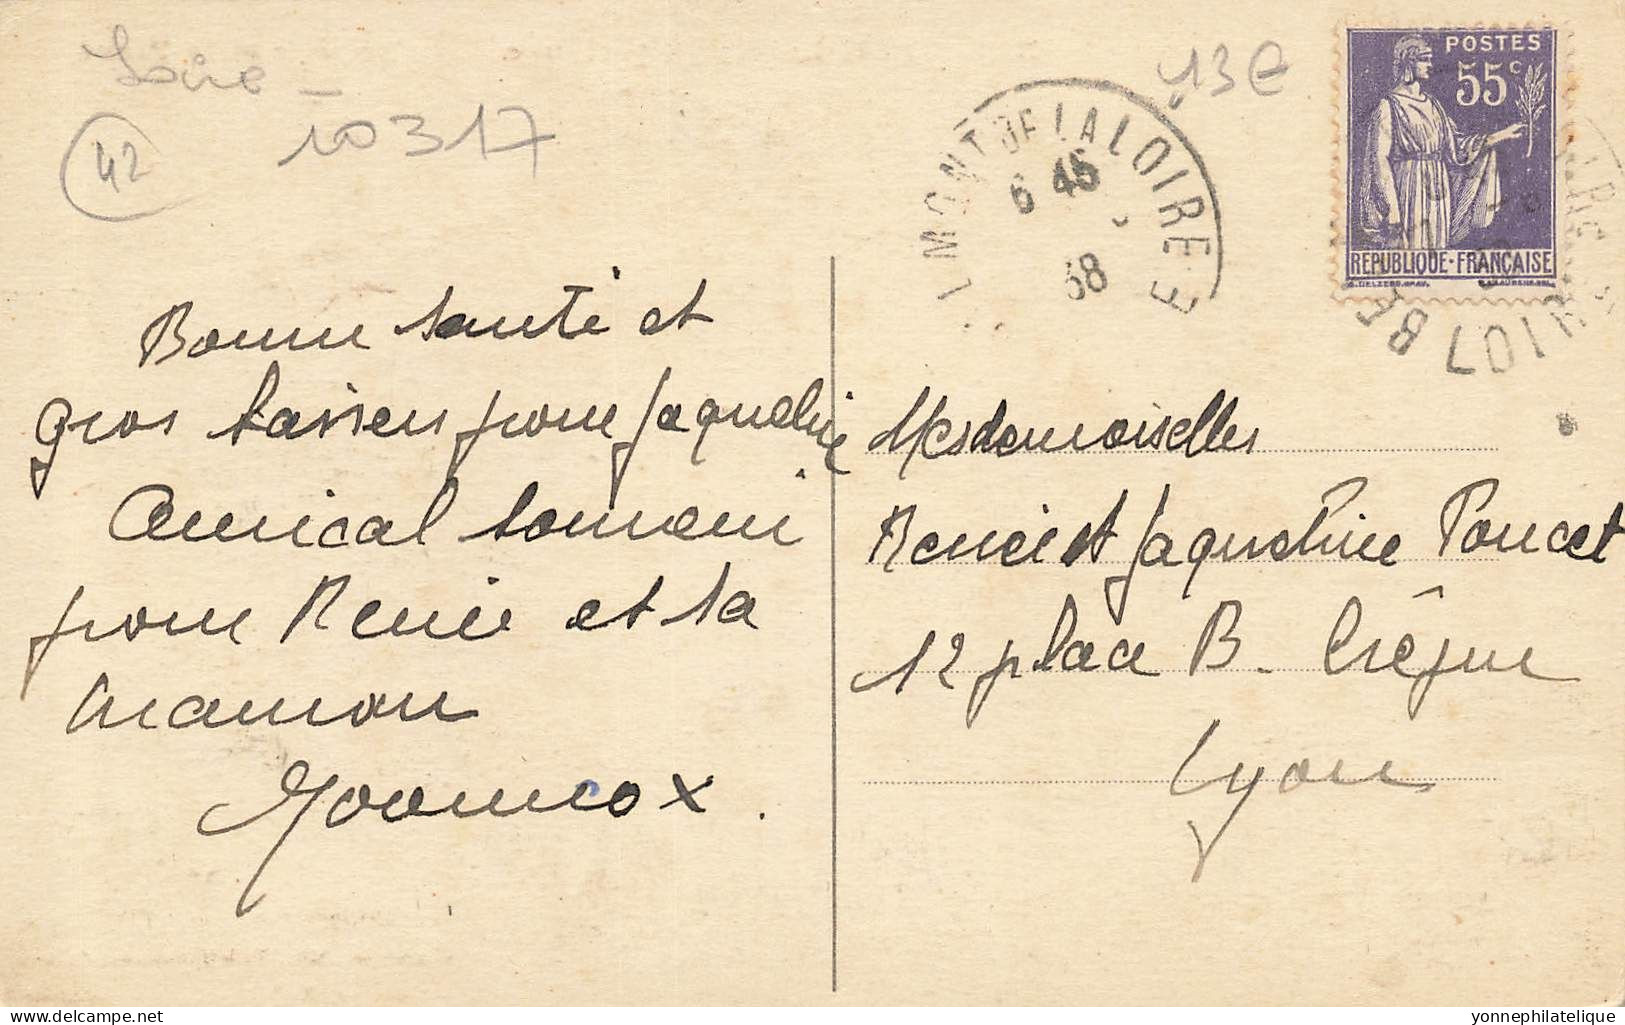 Loire -
42
10317
13€
POSTES
55c
REPUBLIQUE·FRANÇAISE
MONT DE LA LOIRE
6 45
38
Bonne santé et
gros baisers pour Jaqueline
Amical souvenir
pour Renée et sa
maman
Mesdemoiselles
Renée et Jaqueline Poncet
12 place B. Crépu
Lyon
yonnephilatelique.com